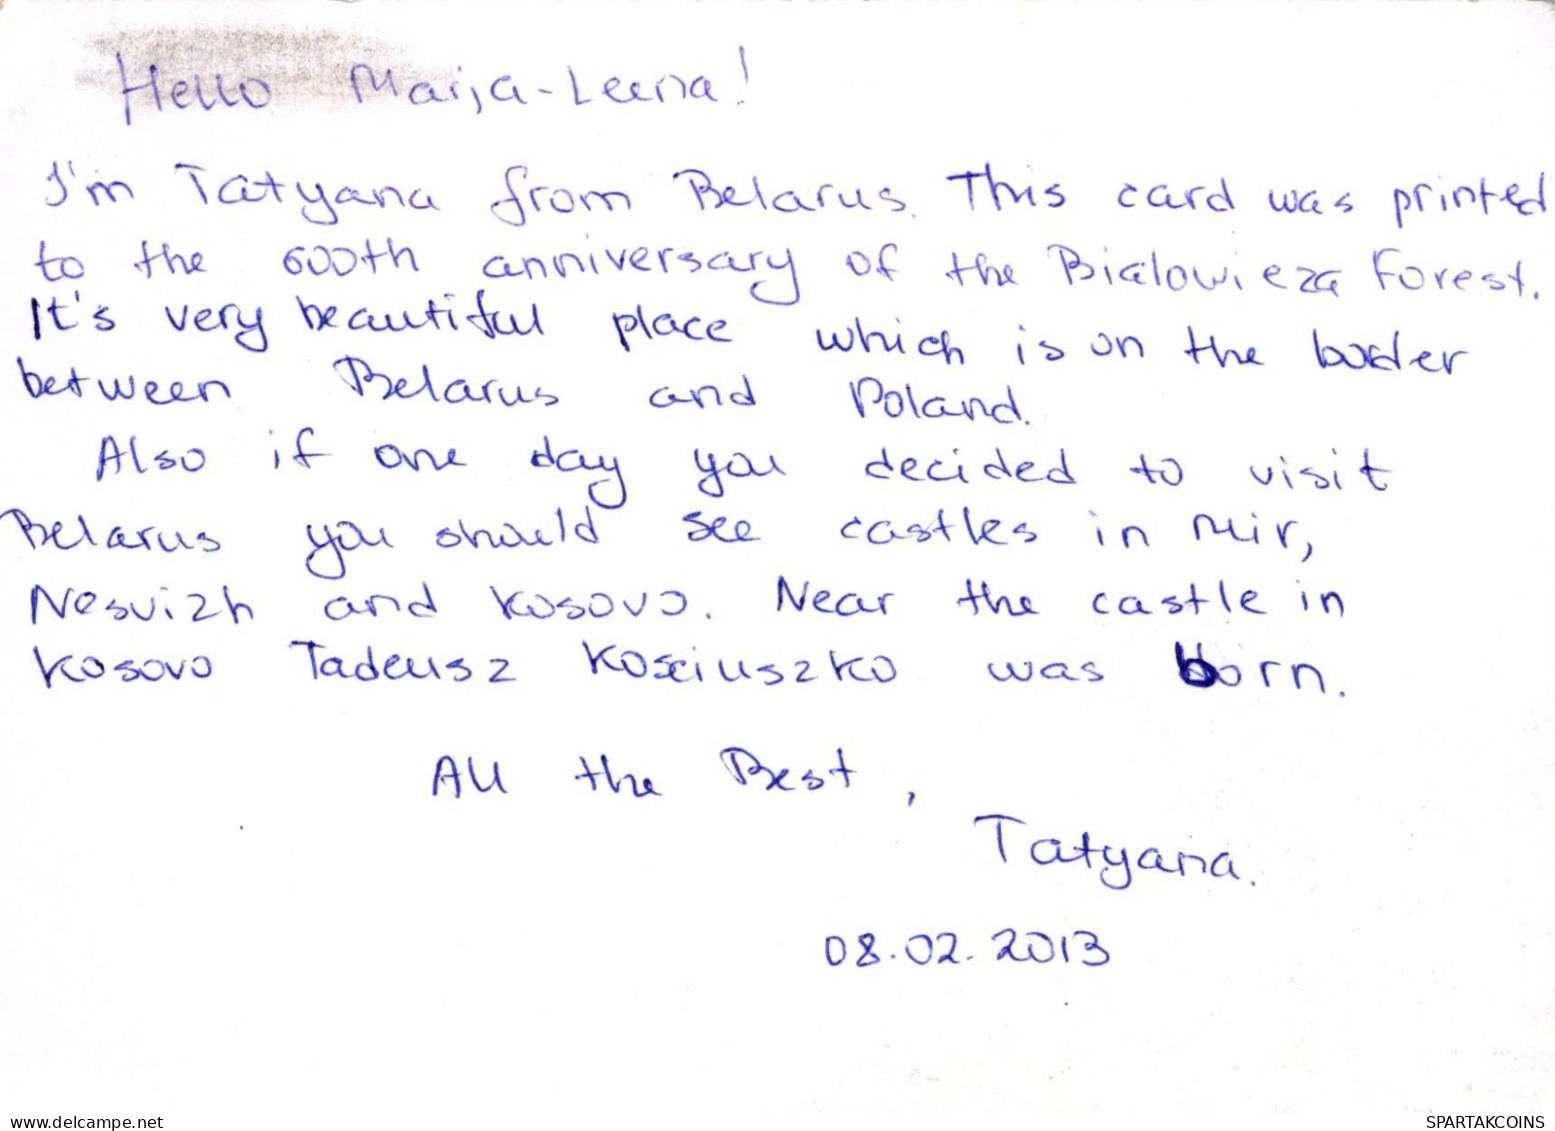 Hello Marja-Leena!
I'm Tatyana from Belarus. This card was printed
to the 600th anniversary of the Bialowieza Forest.
It's very beautiful place which is on the boder
between Belarus and Poland.
Also if one day you decided to visit
Belarus you should see castles in Mir,
Nesvizh and Kosovo. Near the castle in
Kosovo Tadeusz Kosciuszko was born.
All the Best,
Tatyana.
08.02.2013
delcampe.net
SPARTAKCOINS